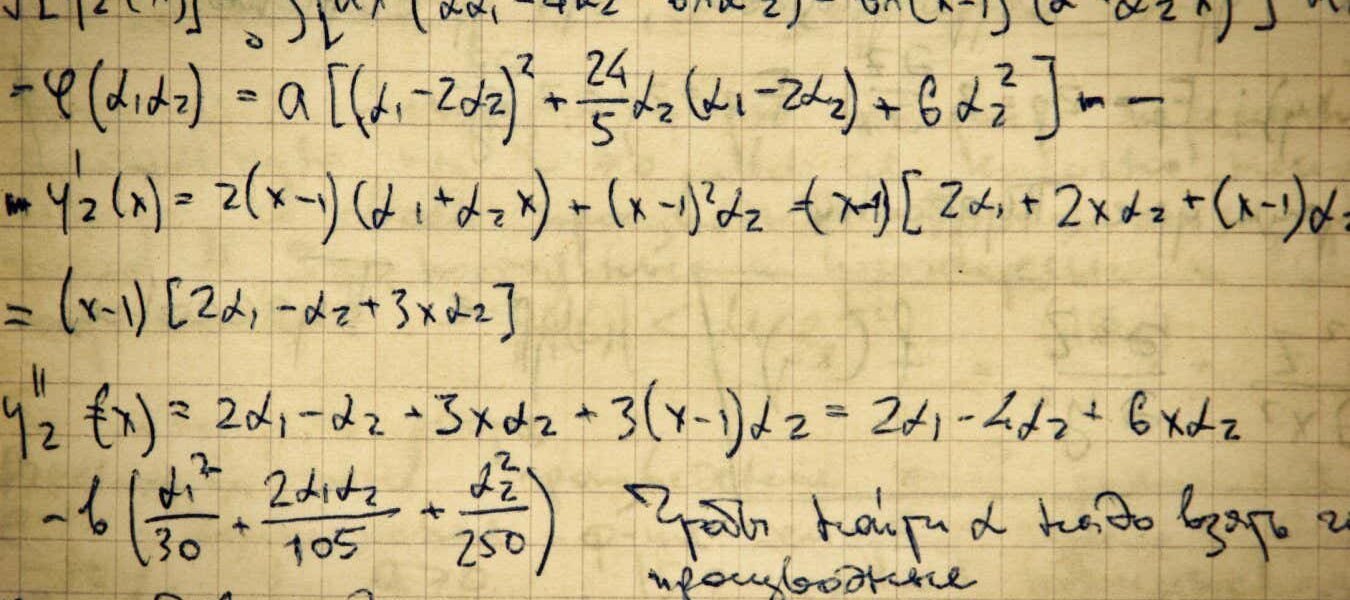 - φ(α₁α₂) = a [(α₁-2α₂)² + 24/5 α₂(α₁-2α₂) + 6α₂²] - -
- y₂'(x) = 2(x-1)(α₁+α₂x) + (x-1)²α₂ = (x-1)[2α₁ + 2xα₂ + (x-1)α₂
= (x-1)[2α₁ - α₂ + 3xα₂]
y₂''(x) = 2α₁ - α₂ + 3xα₂ + 3(x-1)α₂ = 2α₁ - 4α₂ + 6xα₂
- b (α₁²/30 + 2α₁α₂/105 + α₂²/250) Чтобы найти α надо взять
производные